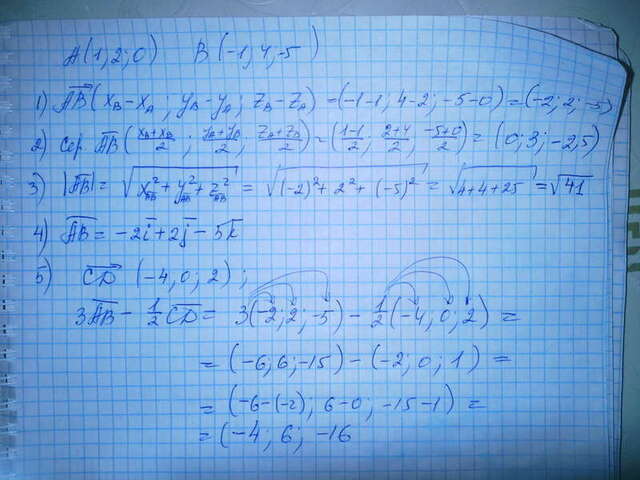 A(1;2;0) B(-1;4;-5)
1) AB(x_B-x_A; y_B-y_A; z_B-z_A) = (-1-1; 4-2; -5-0) = (-2; 2; -5)
2) Сер AB((x_A+x_B)/2; (y_A+y_B)/2; (z_A+z_B)/2) = ((1-1)/2; (2+4)/2; (-5+0)/2) = (0; 3; -2,5)
3) |AB| = √(x²_AB+y²_AB+z²_AB) = √((-2)²+2²+(-5)²) = √(4+4+25) = √41
4) AB = -2i+2j-5k
5) CD (-4; 0; 2);
3AB - 1/2 CD = 3(-2; 2; -5) - 1/2(-4; 0; 2) =
= (-6; 6; -15) - (-2; 0; 1) =
= (-6-(-2); 6-0; -15-1) =
= (-4; 6; -16